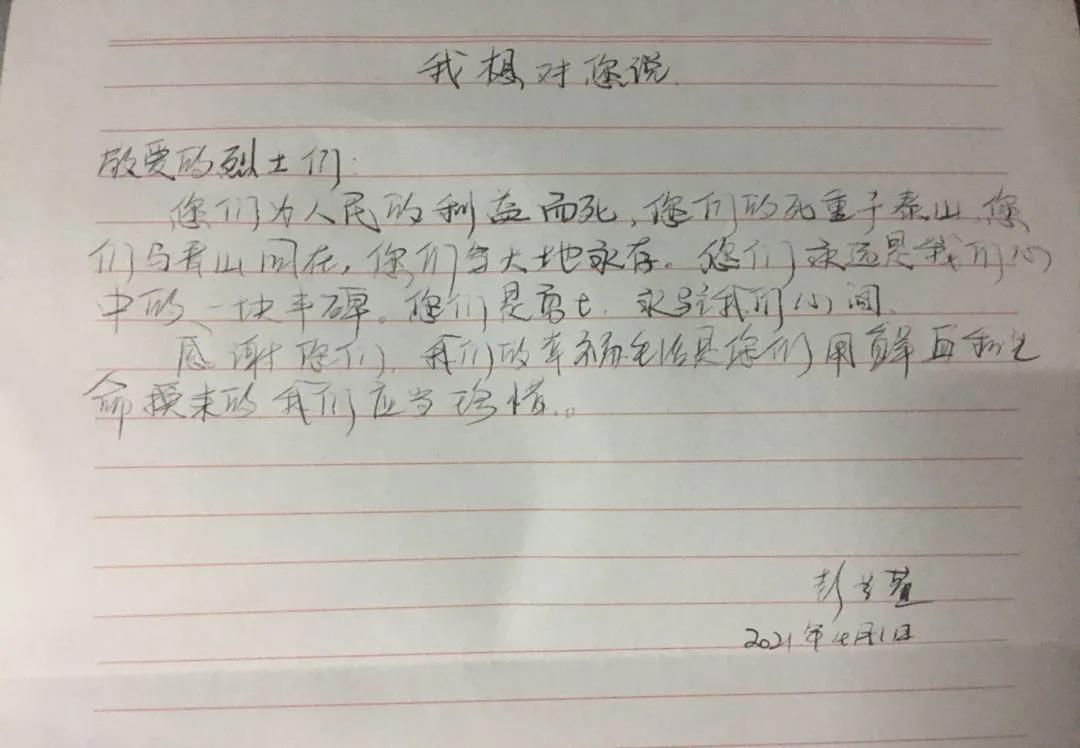 我想对您说
敬爱的烈士们:
您们为人民的利益而死,您们的死重于泰山,您
们与青山同在,您们与大地永存。您们永远是我们心
中的一块丰碑。您们是勇士,永驻我们心间。
感谢您们,我们的幸福生活是您们用鲜血和生
命换来的我们应当珍惜。
彭
2021年4月1日